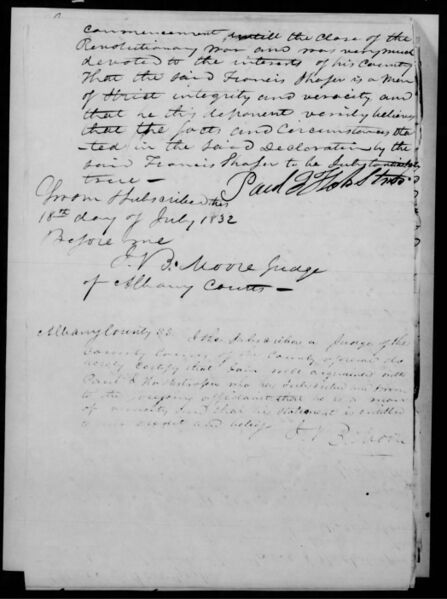 commencement, untill the Close of the
Revolutionary war and was very much
devoted to the interests of his Country
That the said Francis Shafer is a Man
of strict integrity and veracity and
that he this deponent verily believes
that the facts and Circumstances sta-
ted in the said Declaration by the
said Francis Shafer to be Substantially
true —
Sworn & Subscribed this
18th day of July 1832
Before me
J. V B. Moore Judge
of Albany County —
Albany County SS. I the Subscriber a Judge of the
County Courts of the County aforesaid do
hereby certify that I am well acquainted with
Paul who has subscribed and sworn
to the foregoing affidavit that he is a man
of veracity and that his statement is entitled
to credit and belief